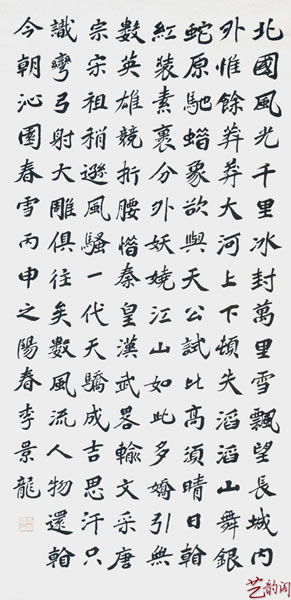 北國風光千里冰封萬里雪飄望長城内
外惟餘莽莽大河上下頓失滔滔山舞銀
蛇原馳蜡象欲與天公試比高須晴日翰
紅裝素裹分外妖嬈江山如此多嬌引無
數英雄競折腰惜秦皇漢武畧輸文采唐
宗宋祖稍遜風騷一代天驕成吉思汗只
識彎弓射大雕俱往矣數風流人物還翰
今朝沁園春雪丙申之陽春李景龍
艺韵阁